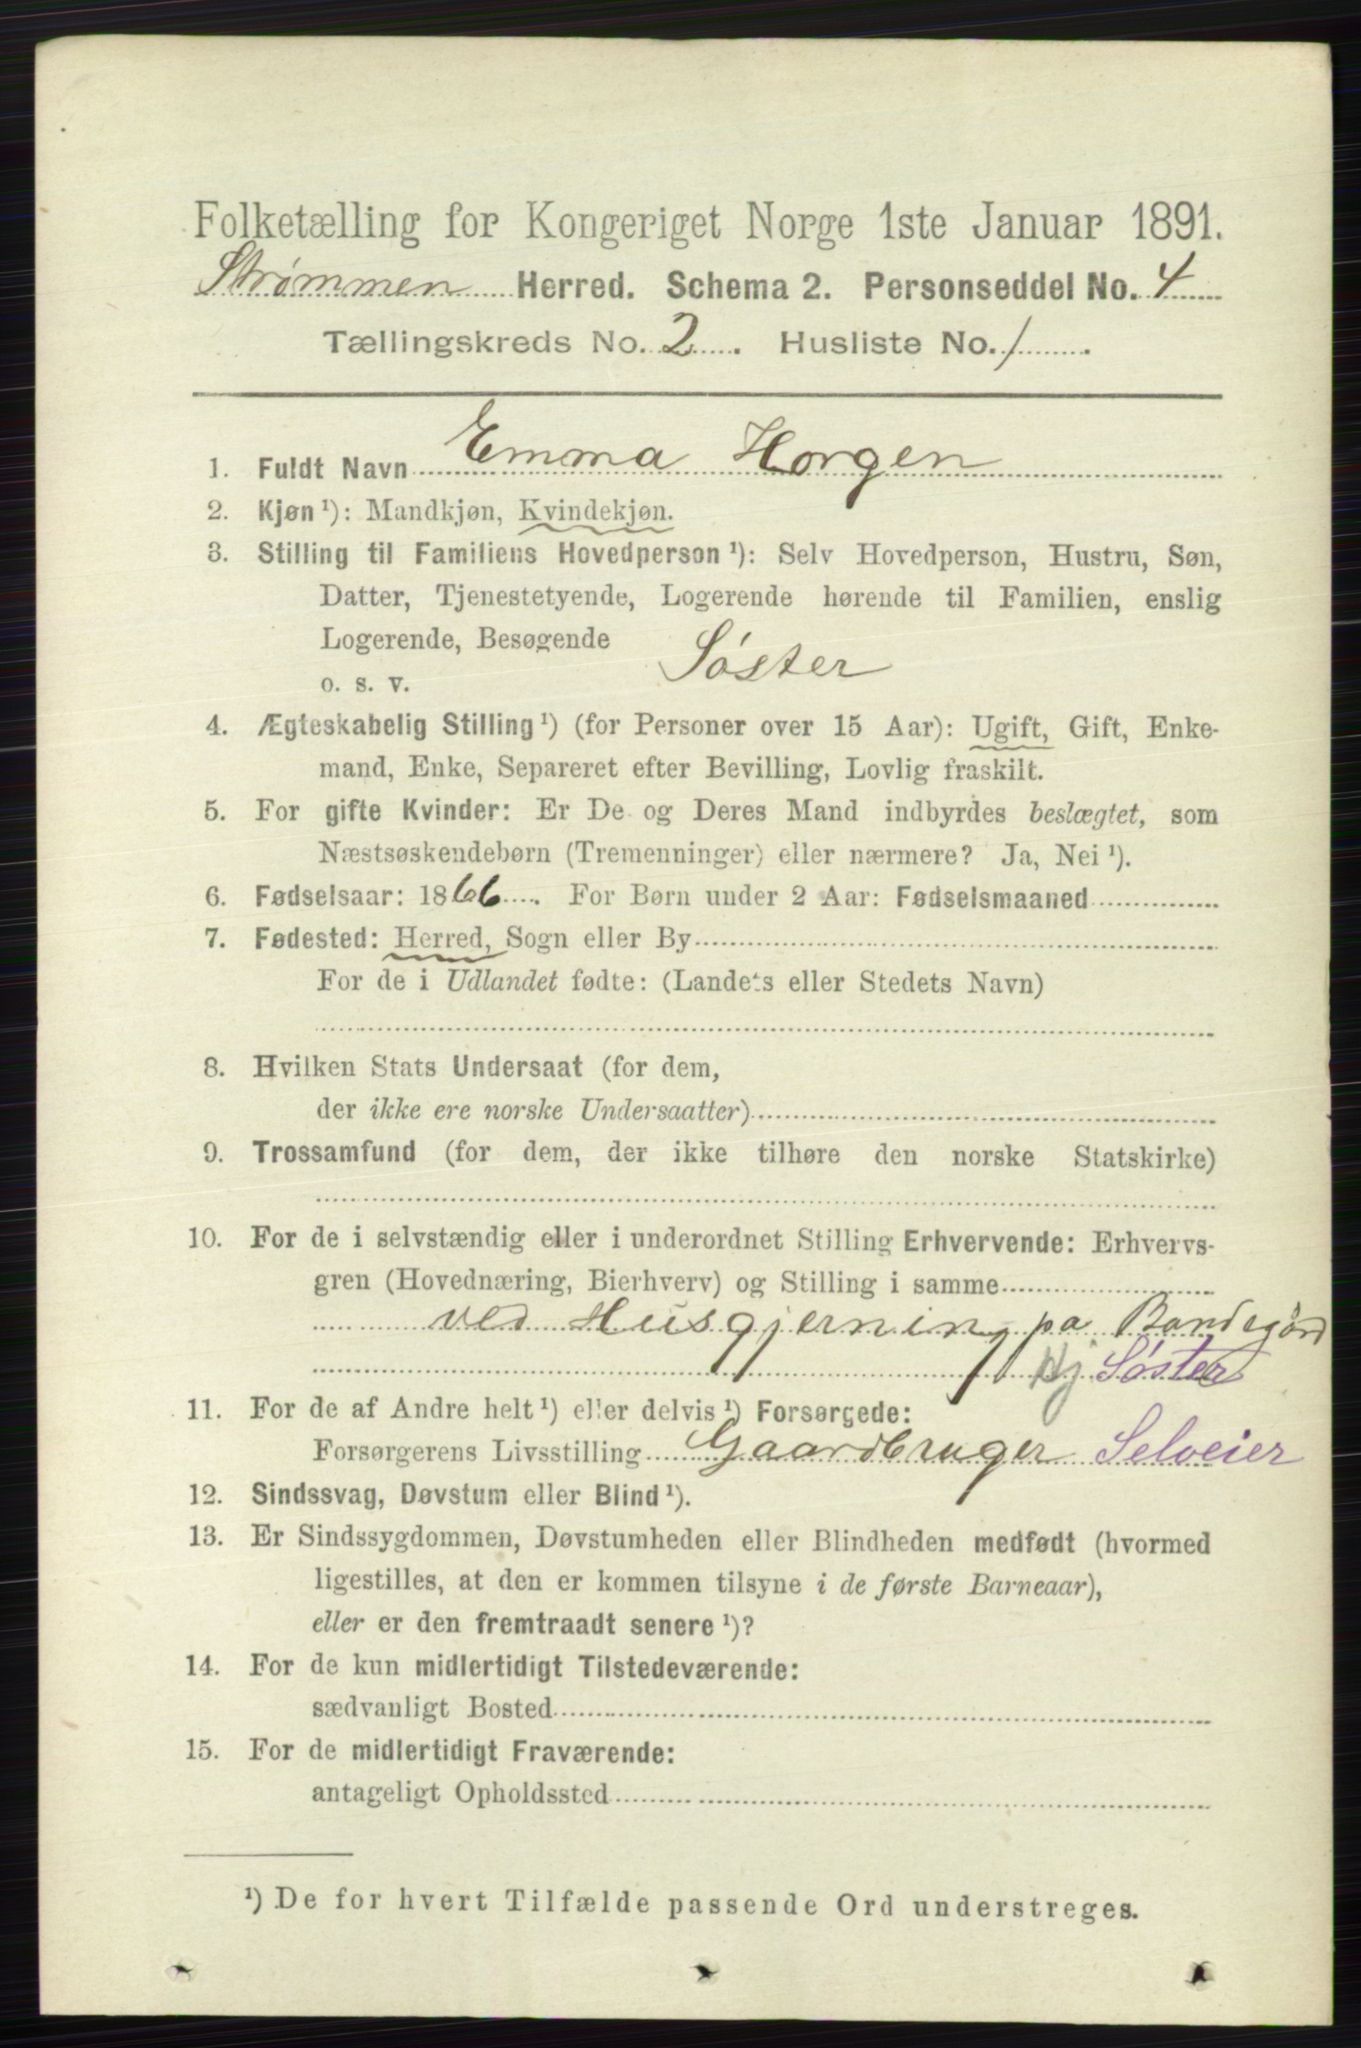 Folketælling for Kongeriget Norge 1ste Januar 1891.
Strømmen Herred. Schema 2. Personseddel No. 4
Tællingskreds No. 2. Husliste No. 1.
1. Fuldt Navn Emma Horgen
2. Kjøn ¹): Mandkjøn, Kvindekjøn.
3. Stilling til Familiens Hovedperson ¹): Selv Hovedperson, Hustru, Søn,
Datter, Tjenestetyende, Logerende hørende til Familien, enslig
Logerende, Besøgende
o. s. v. Søster
4. Ægteskabelig Stilling ¹) (for Personer over 15 Aar): Ugift, Gift, Enke-
mand, Enke, Separeret efter Bevilling, Lovlig fraskilt.
5. For gifte Kvinder: Er De og Deres Mand indbyrdes beslægtet, som
Næstsøskendebørn (Tremenninger) eller nærmere? Ja, Nei ¹).
6. Fødselsaar: 1866. For Børn under 2 Aar: Fødselsmaaned
7. Fødested: Herred, Sogn eller By
For de i Udlandet fødte: (Landets eller Stedets Navn)
8. Hvilken Stats Undersaat (for dem,
der ikke ere norske Undersaatter)
9. Trossamfund (for dem, der ikke tilhøre den norske Statskirke)
10. For de i selvstændig eller i underordnet Stilling Erhvervende: Erhvervs-
gren (Hovednæring, Bierhverv) og Stilling i samme
ved Husgjerning pa
Hj Søster
11. For de af Andre helt ¹) eller delvis ¹) Forsørgede:
Forsørgerens Livsstilling Gaardbruger Selveier
12. Sindssvag, Døvstum eller Blind ¹).
13. Er Sindssygdommen, Døvstumheden eller Blindheden medfødt (hvormed
ligestilles, at den er kommen tilsyne i de første Barneaar),
eller er den fremtraadt senere ¹)?
14. For de kun midlertidigt Tilstedeværende:
sædvanligt Bosted
15. For de midlertidigt Fraværende:
antageligt Opholdssted
¹) De for hvert Tilfælde passende Ord understreges.